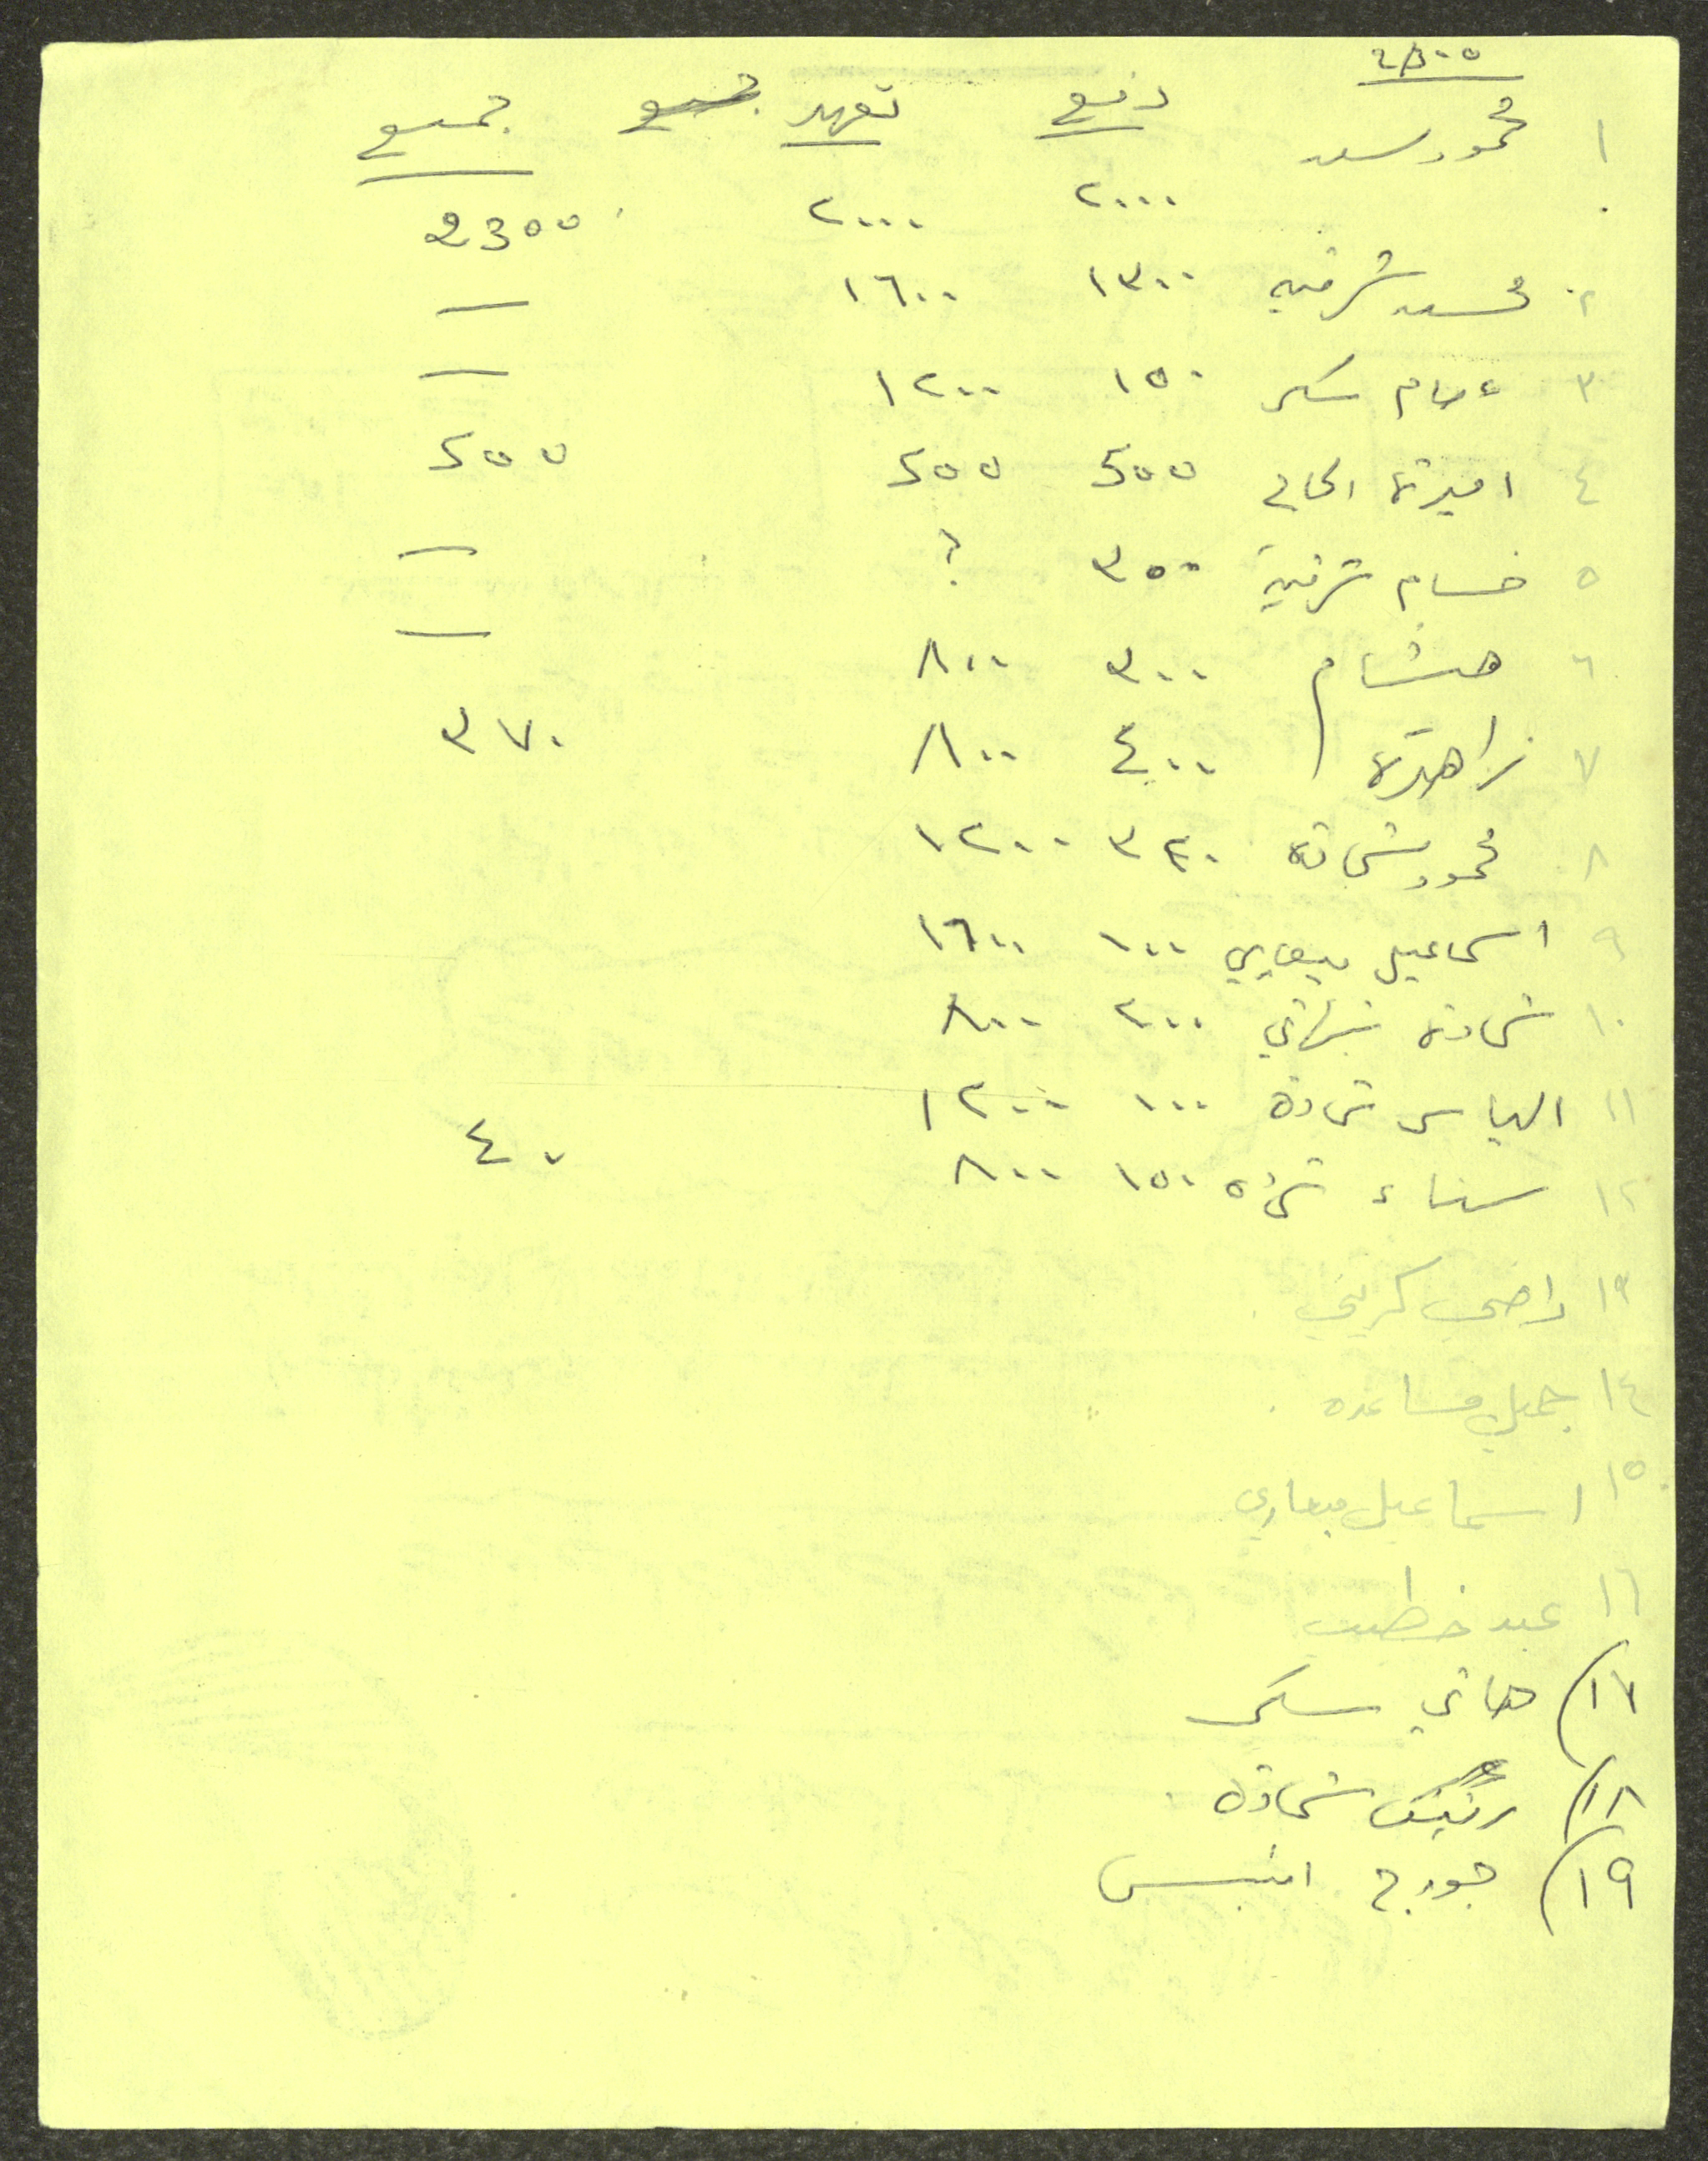 دفع تعهد جمع
١ محمود سعد ٢٠٠٠ ٢٠٠٠ 2300
٢ محمد شرقيه ١٣٠٠ ١٦٠٠ —
٣ عصام سكر ١٥٠ ١٢٠٠ —
٤ اميرة الحاج 500 500 500
٥ حسام شرقية ٣٥٠ ؟ —
٦ هشام ٣٠٠ ٨٠٠ —
٧ زاهرة ٤٠٠ ٨٠٠ ٣٧٠
٨ محمود شحادة ١٢٠٠
٩ اسماعيل ١٠٠ ١٦٠٠
١٠ شحادة نبهاني ٢٠٠ ٨٠٠
١١ الياس شحادة ١٠٠ ١٢٠٠
١٢ سناء شحاده ١٥٠ ٨٠٠ ٤٠
١٣ راضي كريني
١٤ جميل مساعده
١٥ اسماعيل ميعاري
١٦ عبد خطيب
١٧) هاني سكر
١٨) رفيق شحادة
١٩) جورج انيس